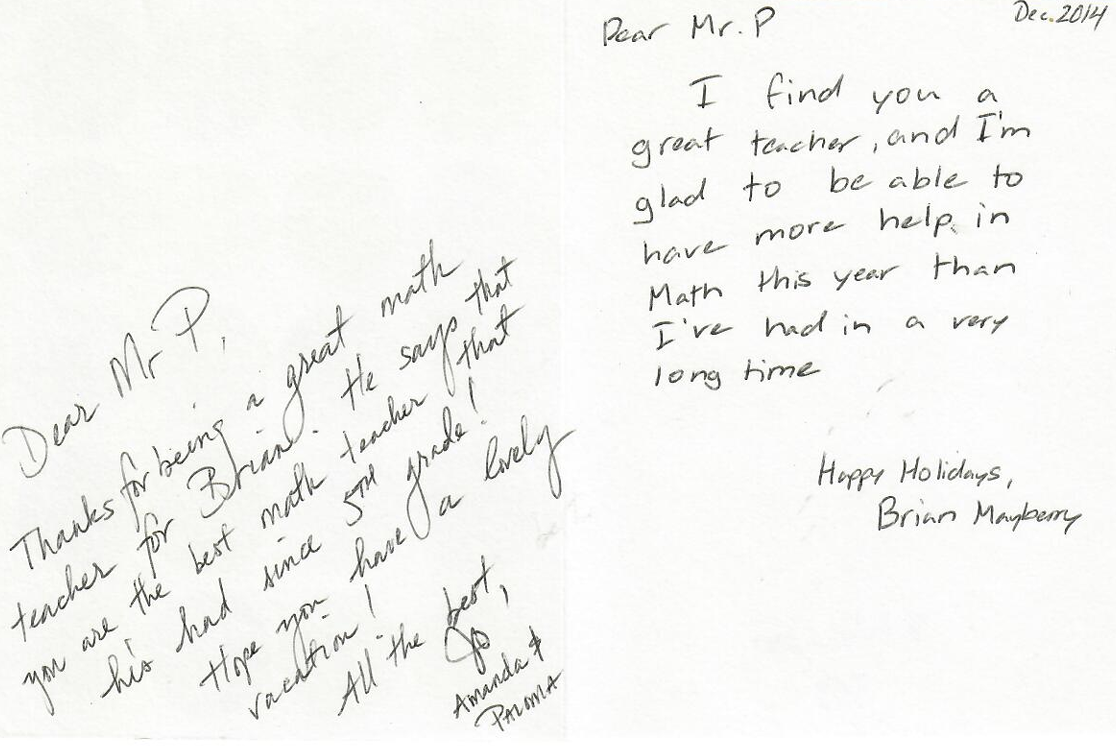 Dear Mr P,
Thanks for being a great math
teacher for Brian. He says that
you are the best math teacher that
his had since 5TH grade!
Hope you have a lovely
vacation!
All the best,
Amanda &
PALOMA
Dec. 2014
Dear Mr. P
I find you a
great teacher, and I'm
glad to be able to
have more help in
Math this year than
I've had in a very
long time
Happy Holidays,
Brian Mayberry